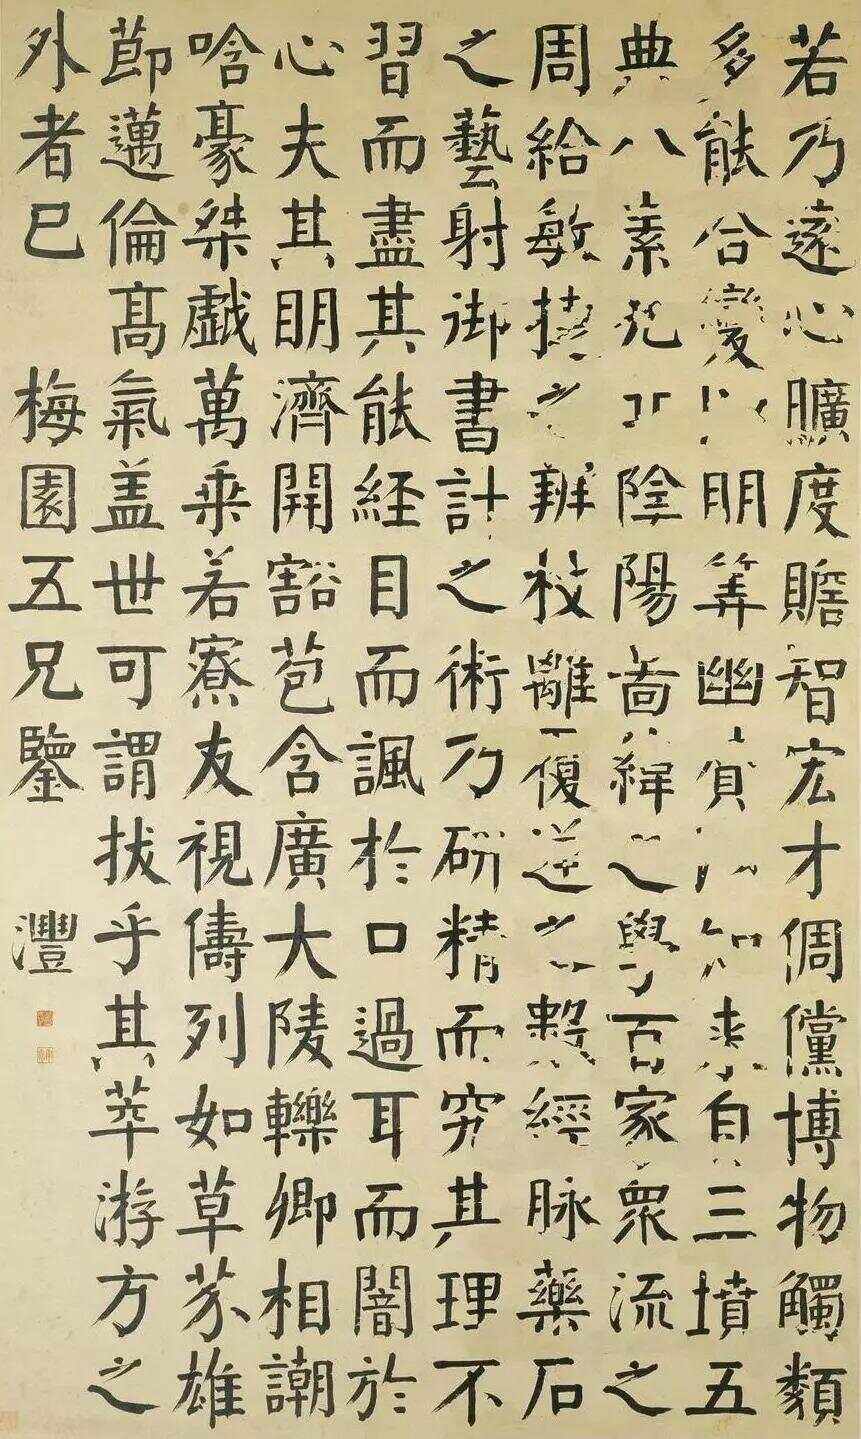 若乃遠心曠度贍智宏才倜儻博物觸類
多能合變以明筭幽賛以知来自三墳五
典八素九丘陰陽啚緯之學百家衆流之
周給敏捷之辨枝離覆逆之數經脉藥石
之藝射御書計之術乃研精而究其理不
習而盡其能経目而諷於口過耳而闇於
心夫其明濟開豁苞含廣大陵轢卿相謿
唅豪桀戲萬乗若寮友視儔列如草芥雄
莭邁倫髙氣盖世可謂拔乎其萃游方之
外者已 梅園五兄鑒 灃